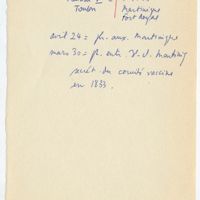 Toulon Martinique
Fort Royal
avril 24 = ph. aux. Martinique
mars 30 = ph. entr. V. d. Martiniq
secrét. du comité vaccine
en 1833.